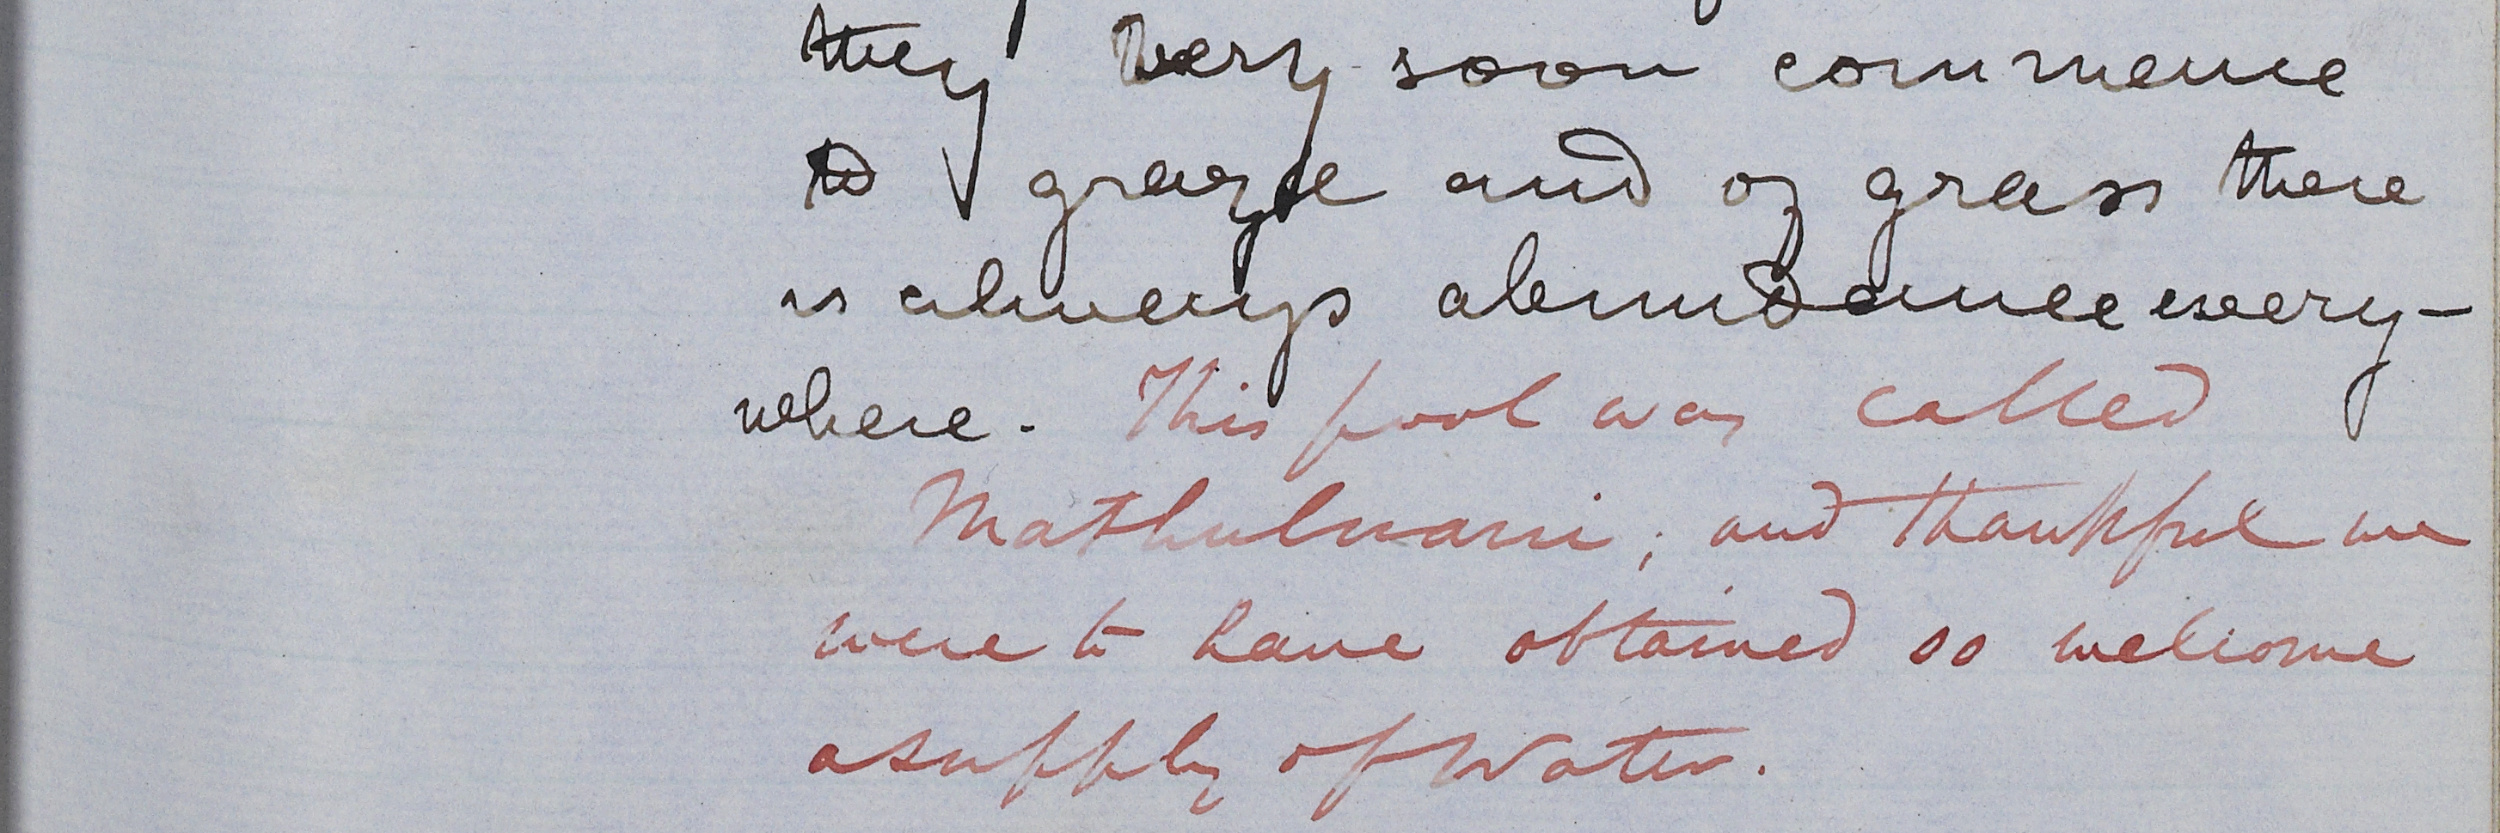 they very soon commence
to graze and of grass there
is always abundance every-
where. This pool was called
Mathuluani; and thankful we
were to have obtained so welcome
a supply of Water.